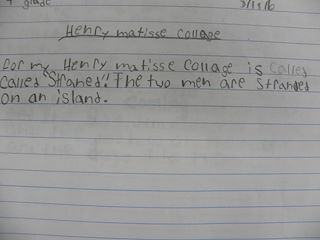 grade
Henry matisse Collage
for my Henry matisse Collage is Called
Called "Straned". The two men are Stranded
on an island.